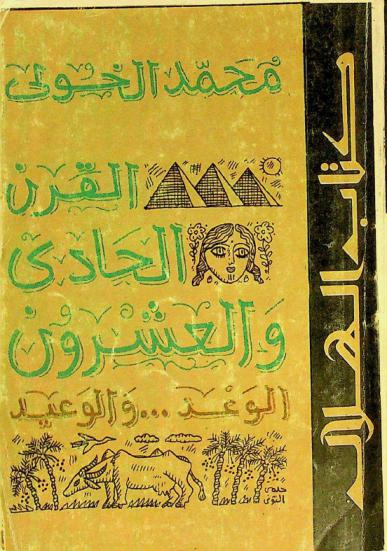 محمّد الخولى
القرن
الحادى
والعشرون
الوعد ... والوعيد
حلمى
التونى
كتاب الهلال